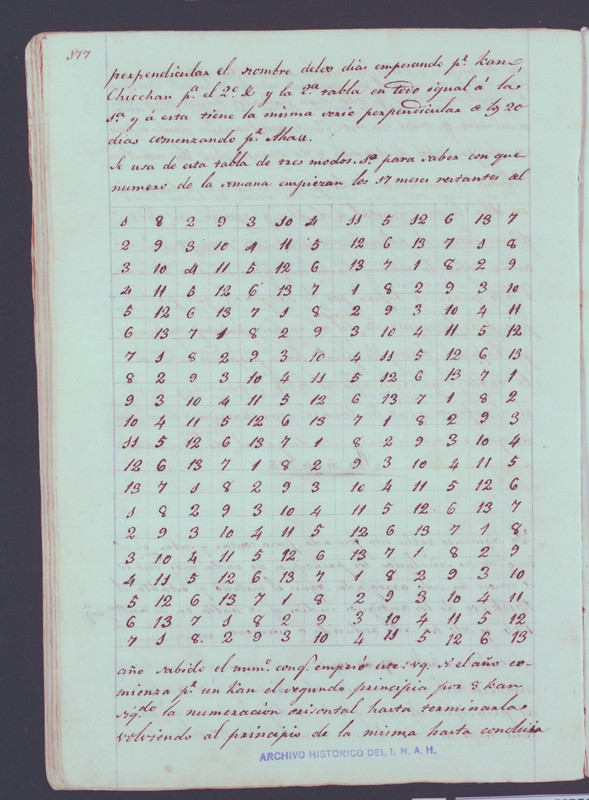 377
perpendicular el nombre delos dias empesando pr. Kan,
Chicchan pa. el 2o. & y la 2a. tabla en todo igual á la
1a. y á esta tiene la misma serie perpendicular de ls 20
dias comenzando pr. Ahau.
Se usa de esta tabla de tres modos. 1a. para saber con que
numero de la semana empiezan los 17 meses restantes del
1 8 2 9 3 10 4 11 5 12 6 13 7
2 9 3 10 4 11 5 12 6 13 7 1 8
3 10 4 11 5 12 6 13 7 1 8 2 9
4 11 5 12 6 13 7 1 8 2 9 3 10
5 12 6 13 7 1 8 2 9 3 10 4 11
6 13 7 1 8 2 9 3 10 4 11 5 12
7 1 8 2 9 3 10 4 11 5 12 6 13
8 2 9 3 10 4 11 5 12 6 13 7 1
9 3 10 4 11 5 12 6 13 7 1 8 2
10 4 11 5 12 6 13 7 1 8 2 9 3
11 5 12 6 13 7 1 8 2 9 3 10 4
12 6 13 7 1 8 2 9 3 10 4 11 5
13 7 1 8 2 9 3 10 4 11 5 12 6
1 8 2 9 3 10 4 11 5 12 6 13 7
2 9 3 10 4 11 5 12 6 13 7 1 8
3 10 4 11 5 12 6 13 7 1 8 2 9
4 11 5 12 6 13 7 1 8 2 9 3 10
5 12 6 13 7 1 8 2 9 3 10 4 11
6 13 7 1 8 2 9 3 10 4 11 5 12
7 1 8 2 9 3 10 4 11 5 12 6 13
año sabido el numo. conq. empesó este: vg. si el año co-
mienza pr. un Kan el segundo principia por 8 Kan
sigdo. la numeracion orisontal hasta terminarla
volviendo al principio de la misma hasta concluir
ARCHIVO HISTORICO DEL I. N. A. H.